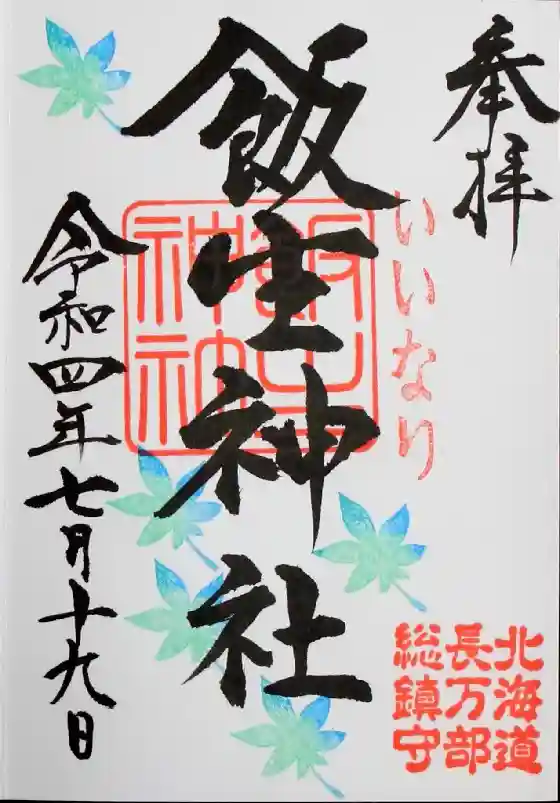 奉拝
いいなり
飯生神社
飯生
神社
令和四年七月十九日
北海道
長万部
総鎮守